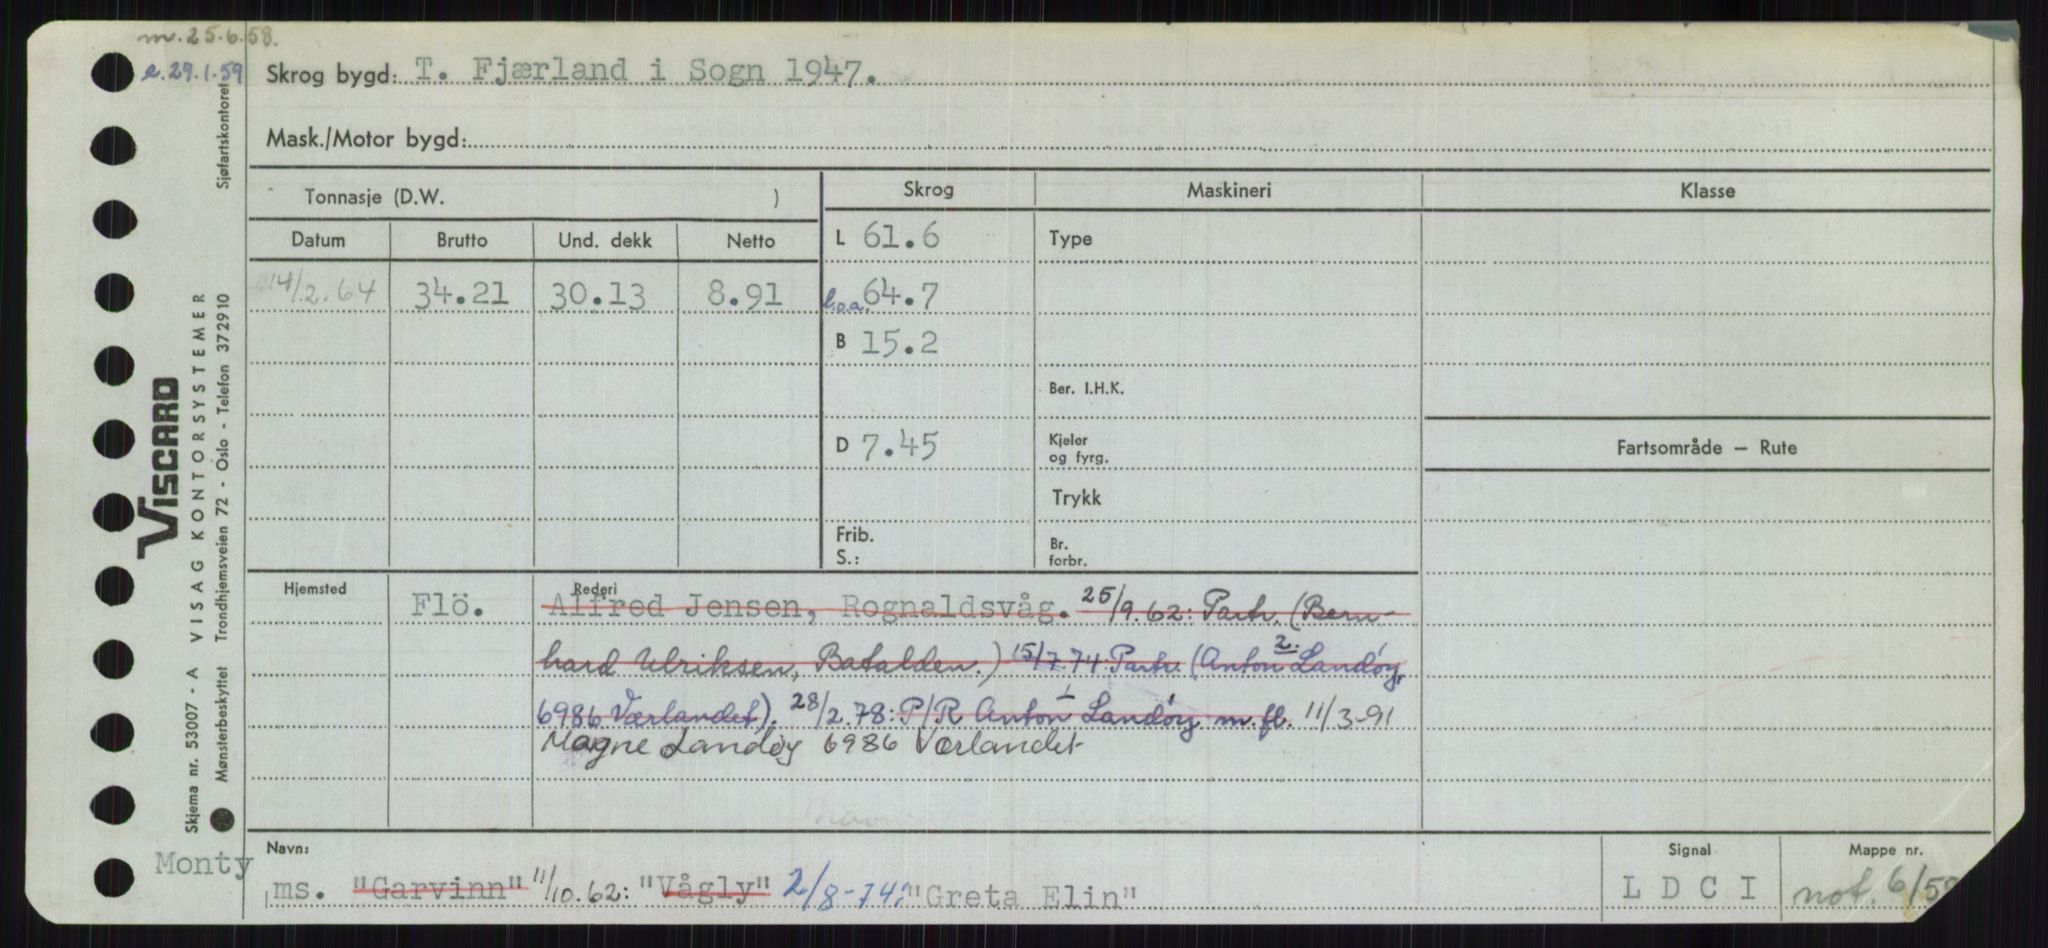 m. 25.6.58.
e. 29.1.59
Skrog bygd: T. Fjærland i Sogn 1947.
Mask./Motor bygd:
Tonnasje (D.W. )
Skrog
Maskineri
Klasse
Datum
Brutto
Und. dekk
Netto
L 61.6
Type
14/2.64
34.21
30.13
8.91
l.o.a. 64.7
B 15.2
Ber. I.H.K.
D 7.45
Kjeler
og fyrg.
Fartsområde – Rute
Trykk
Frib.
S.:
Br.
forbr.
Hjemsted
Flö.
Rederi
Alfred Jensen, Rognaldsvåg. 25/9.62: Partr. (Bern-
hard Ulriksen, Batalden.) 15/7.74: Partr. (Anton 2: Landøy,
6986 Værlandet). 28/2.78: P/R Anton L Landøy m.fl. 11/3-91
Magne Landøy 6986 Værlandet
Navn:
Monty
ms. "Garvinn" 11/10.62: "Vågly" 2/8-74: "Greta Elin"
Signal
L D C I
Mappe nr.
not. 6/59
Sjøfartskontoret
VISCARD
VISAG KONTORSYSTEMER
Skjema nr. 53007 - A
Mønsterbeskyttet Trondhjemsveien 72 - Oslo - Telefon 372910